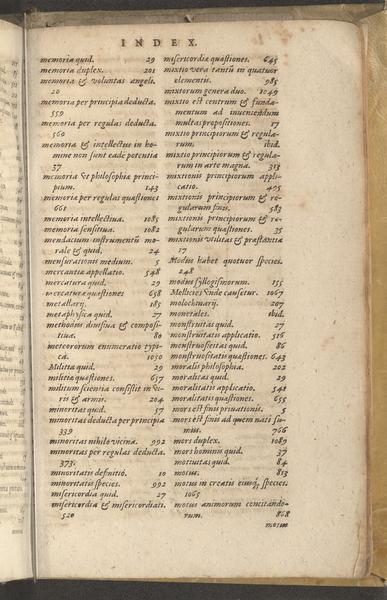 INDEX.
memoria quid. 29
memoria duplex. 201
memoria & voluntas angeli.
20
memoria per principia deducta.
559
memoria per regulas deducta.
560
memoria & intellectus in ho-
mine non sunt eadē potentia
37
memoria vt philosophiæ princi-
pium. 143
memoria per regulas quæstiones
661
memoria intellectiua. 1085
memoria sensitiua. 1082
mendacium instrumentū mo-
rale & quid. 24
mensurationis medium. 5
mercantiæ appellatio. 548
mercatura quid. 29
mercaturæ quæstiones 658
metallarij. 185
metaphysica quid. 27
methodus diuisiua & composi-
tiua. 80
meteororum enumeratio typi-
ca. 1050
Militia quid. 29
militiæ quæstiones. 657
militum scientia consistit in vi-
ris & armis. 204
minoritas quid. 57
minoritas deducta per principia
339
minoritas nihilo vicina. 992
minoritas per regulas deducta.
373.
minoritatis definitio. 10
minoritatis species. 992
misericordia quid. 27
misericordia & misericordiati.
520
misericordiæ quæstiones. 645
mixtio vera tantū in quatuor
elementis. 985
mixtorum genera duo. 1049
mixtio est centrum & funda-
mentum ad inueniendum
multas propositiones. 17
mixtio principiorum & regula-
rum. ibid.
mixtio principiorum & regula-
rum in arte magna. 313
mixtionis principiorum appli-
catio. 405
mixtionis principiorum & re-
gularum finis. 583
mixtionis principiorum & re-
gularum quæstiones. 35
mixtionis vtilitas & præstantia
17
Modus habet quotuor species.
248
modus syllogismorum. 155
Molleties vnde causetur. 1067
molochinarij. 207
monetales. ibid.
monstruitas quid. 27
monstruitatis applicatio. 516
monstruositas quid. 86
monstruositatis quæstiones. 643
moralis philosophia. 202
moralitas quid. 29
moralitatis applicatio. 542
moralitatis quæstiones. 655
mors est finis priuationis. 5
mors est finis ad quem nati su-
mus. 766
mors duplex. 1089
mors hominis quid. 37
mortuitas quid. 84
motus. 813
motus in creatis eiusq; species.
1065
motus animorum concitando-
rum. 868
motus